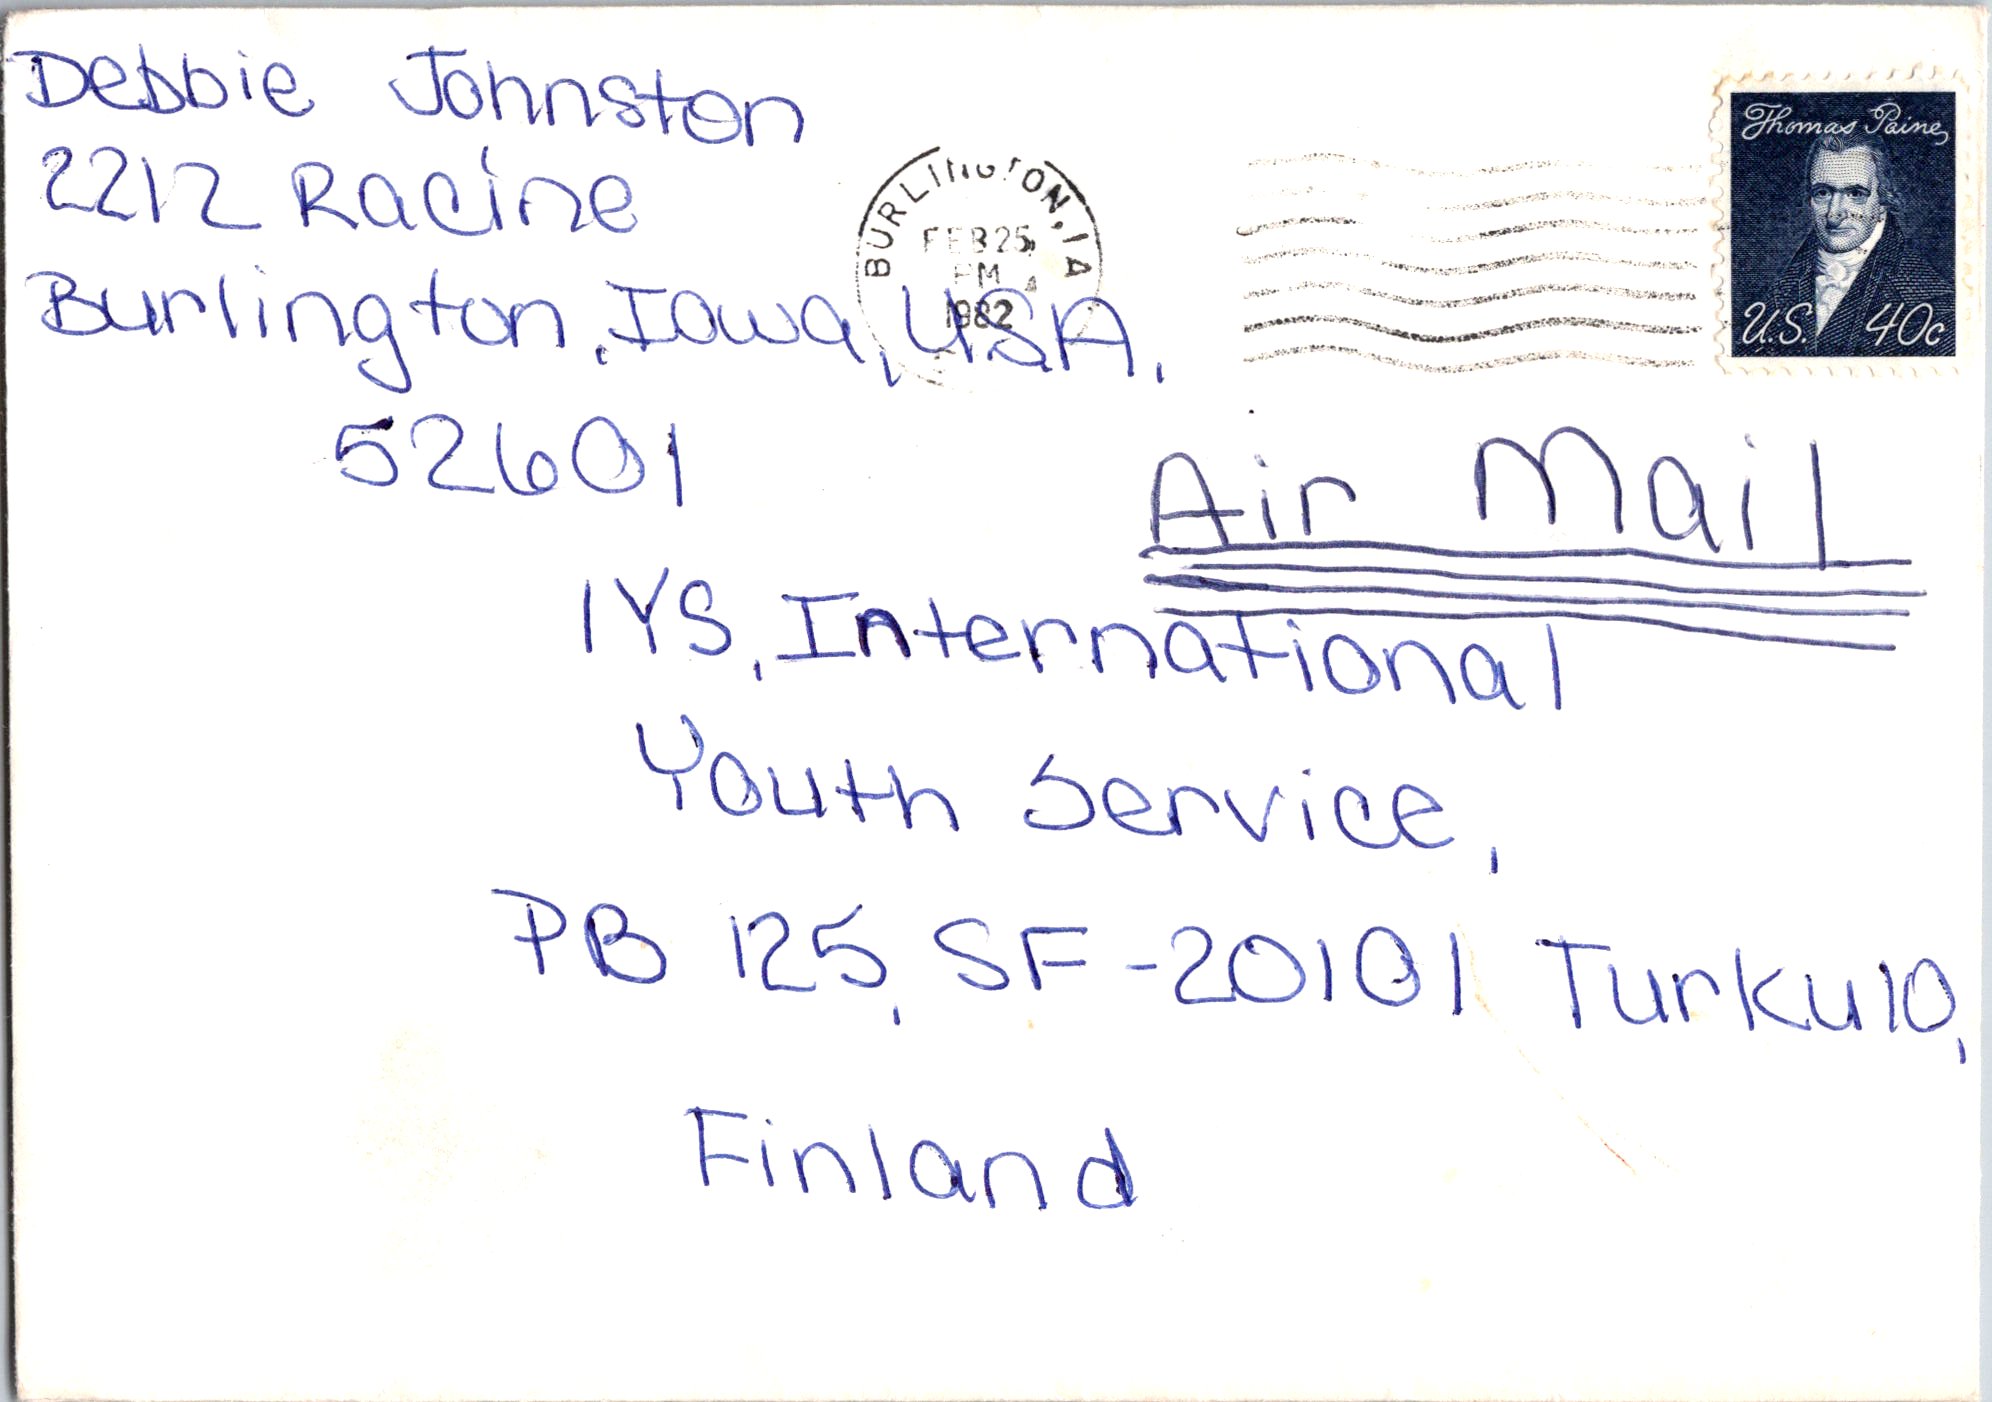 Debbie Johnston
2212 Racine
Burlington, Iowa, USA,
52601
BURLINGTON, IA
FEB 25
PM
1982
Thomas Paine
U.S. 40c
Air Mail
IYS, International
Youth Service,
PB 125, SF-20101 Turku 10,
Finland